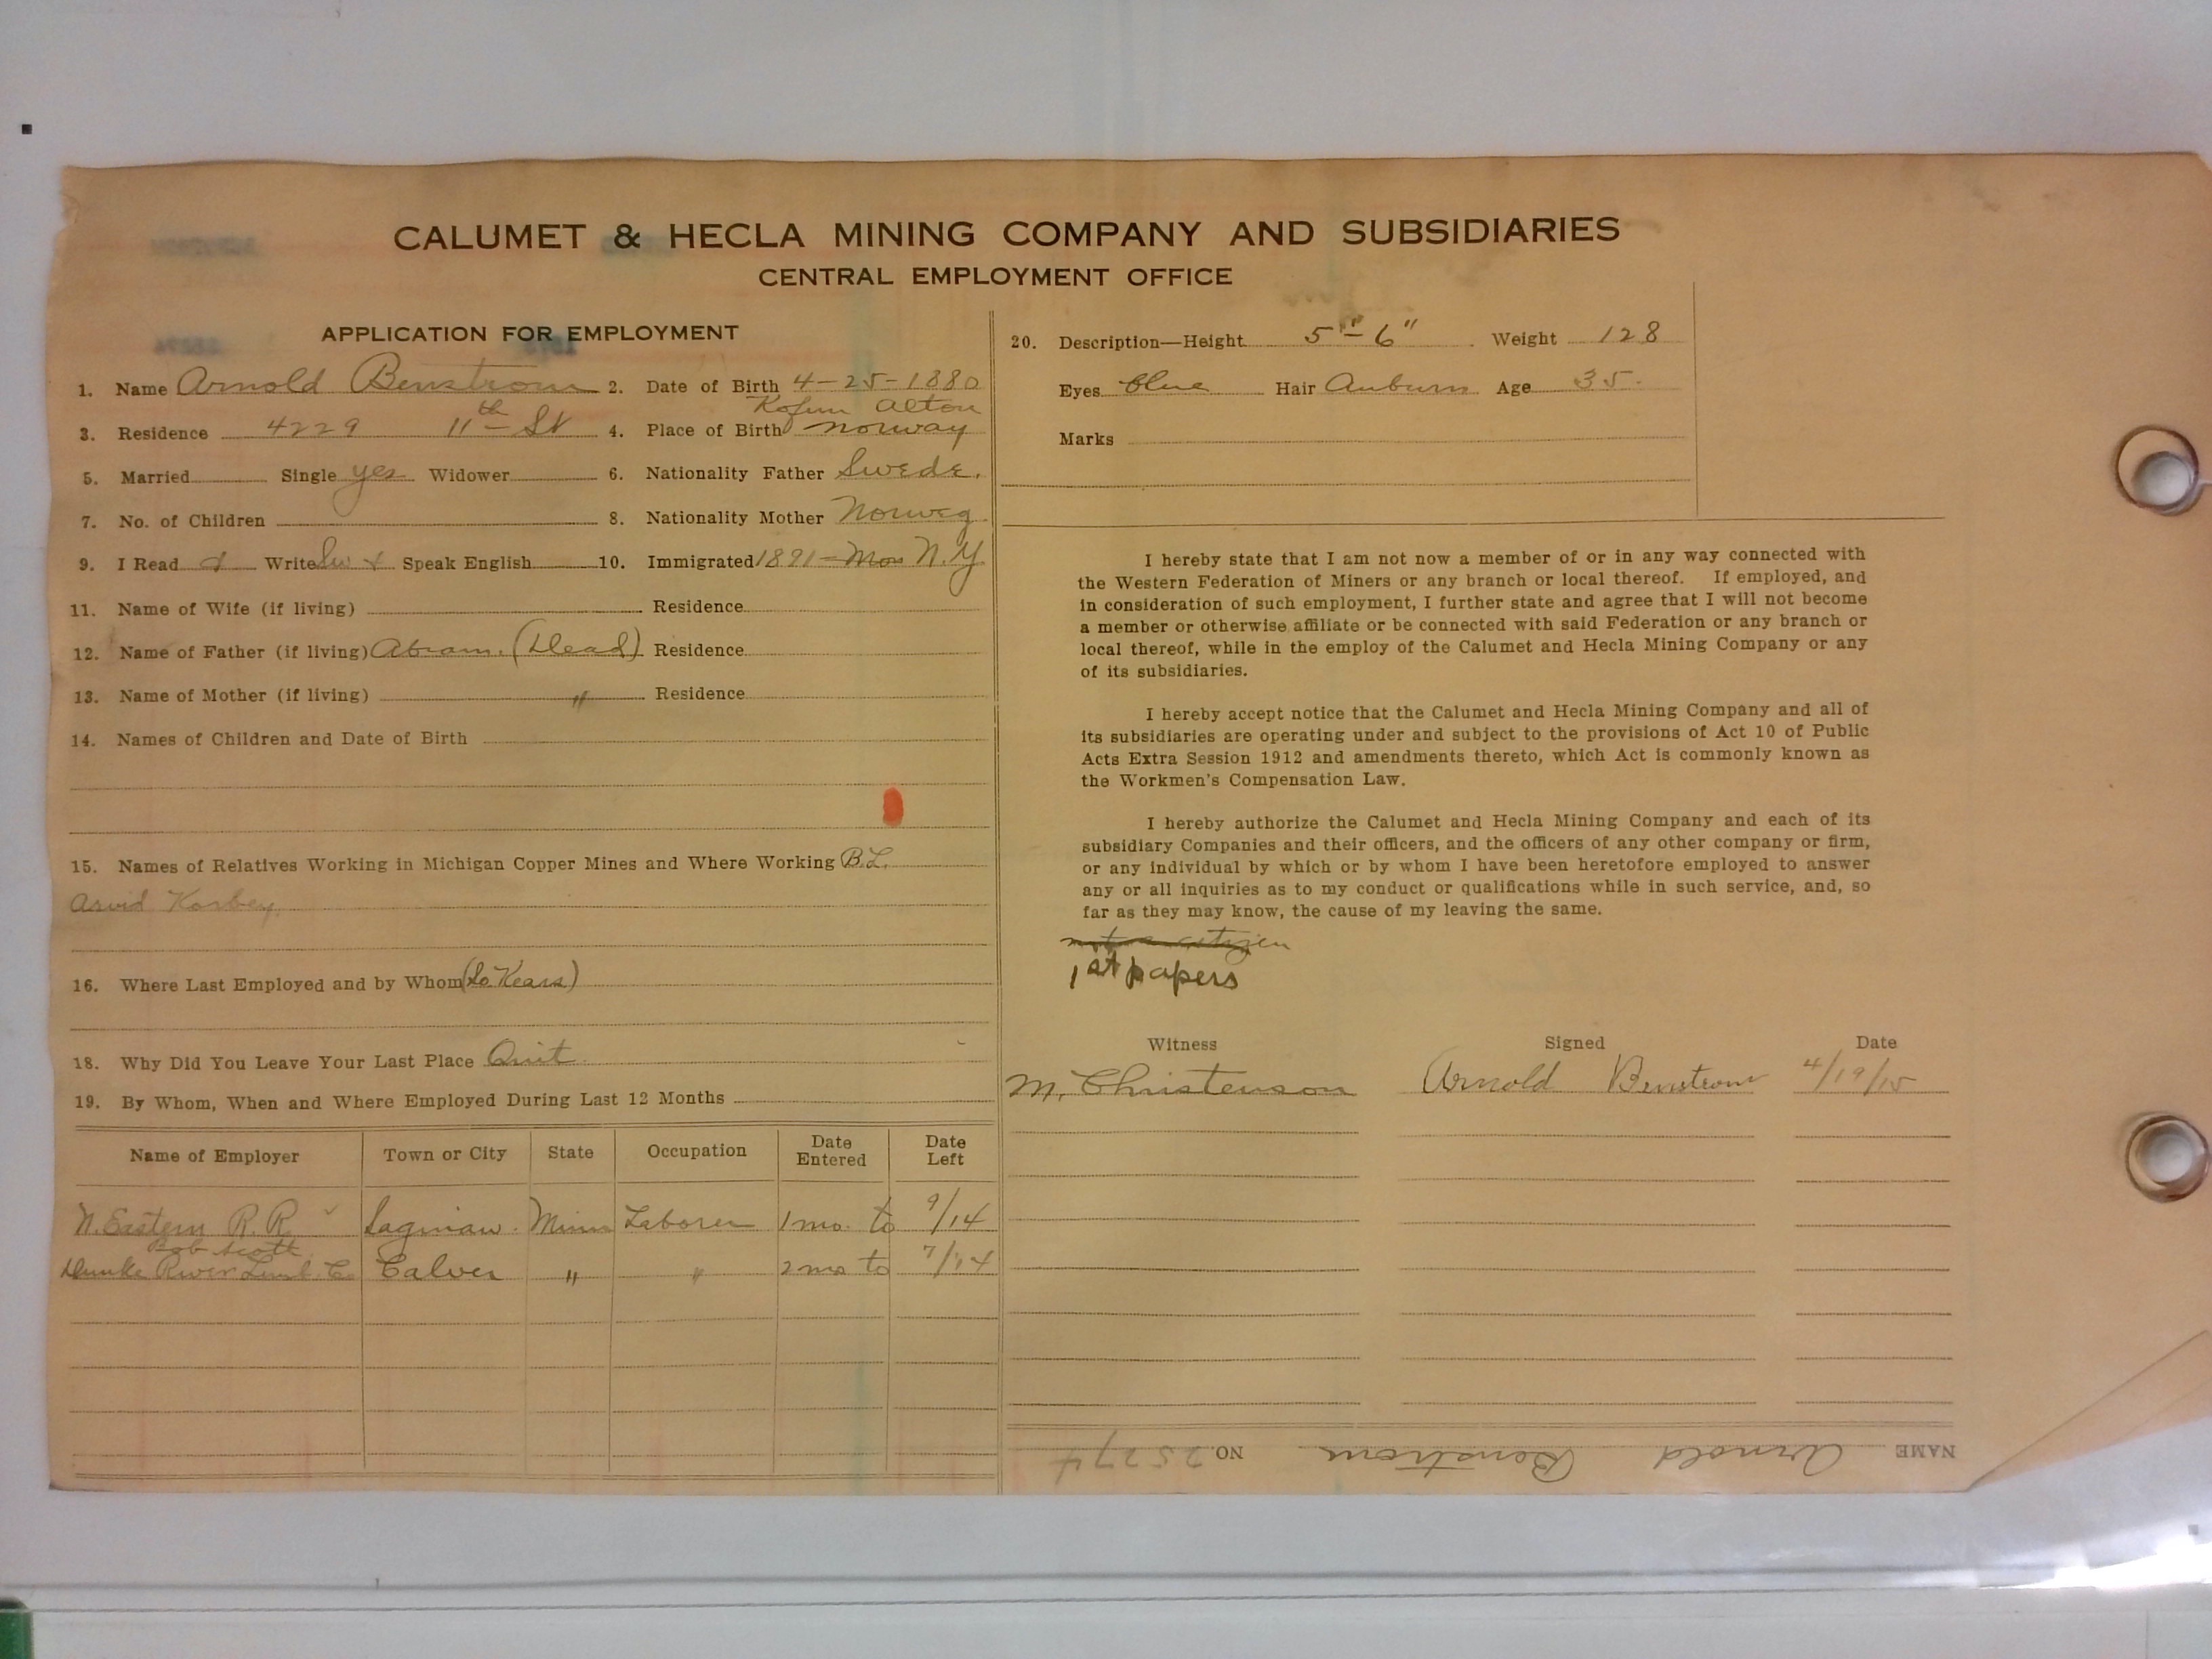 CALUMET & HECLA MINING COMPANY AND SUBSIDIARIES
CENTRAL EMPLOYMENT OFFICE
APPLICATION FOR EMPLOYMENT
1. Name Arnold Benstrom 2. Date of Birth 4-25-1880
3. Residence 4229 11th St 4. Place of Birth Norway
5. Married Single yes Widower 6. Nationality Father Swede.
7. No. of Children 8. Nationality Mother Norweg
9. I Read Write Sw Speak English 10. Immigrated 1891 - N.Y
11. Name of Wife (if living) Residence
12. Name of Father (if living) Abram. (Dead) Residence
13. Name of Mother (if living) " Residence
14. Names of Children and Date of Birth
15. Names of Relatives Working in Michigan Copper Mines and Where Working B.L.
Arvid Korbey
16. Where Last Employed and by Whom (So Kears)
18. Why Did You Leave Your Last Place Quit
19. By Whom, When and Where Employed During Last 12 Months
Name of Employer Town or City State Occupation Date Entered Date Left
N. Eastern R.R. Saginaw. Minn Laborer 1 mo. to 9/14
Bob Scott
River Lumb. Co Calver " " 2 mo to 7/14
20. Description—Height 5'-6" Weight 128
Eyes blue Hair Auburn Age 35.
Marks
I hereby state that I am not now a member of or in any way connected with
the Western Federation of Miners or any branch or local thereof. If employed, and
in consideration of such employment, I further state and agree that I will not become
a member or otherwise affiliate or be connected with said Federation or any branch or
local thereof, while in the employ of the Calumet and Hecla Mining Company or any
of its subsidiaries.
I hereby accept notice that the Calumet and Hecla Mining Company and all of
its subsidiaries are operating under and subject to the provisions of Act 10 of Public
Acts Extra Session 1912 and amendments thereto, which Act is commonly known as
the Workmen's Compensation Law.
I hereby authorize the Calumet and Hecla Mining Company and each of its
subsidiary Companies and their officers, and the officers of any other company or firm,
or any individual by which or by whom I have been heretofore employed to answer
any or all inquiries as to my conduct or qualifications while in such service, and, so
far as they may know, the cause of my leaving the same.
not a citizen
1st papers
Witness Signed Date
M. Christenson Arnold Benstrom 4/19/15
NAME Arnold Benstrom NO. 25274